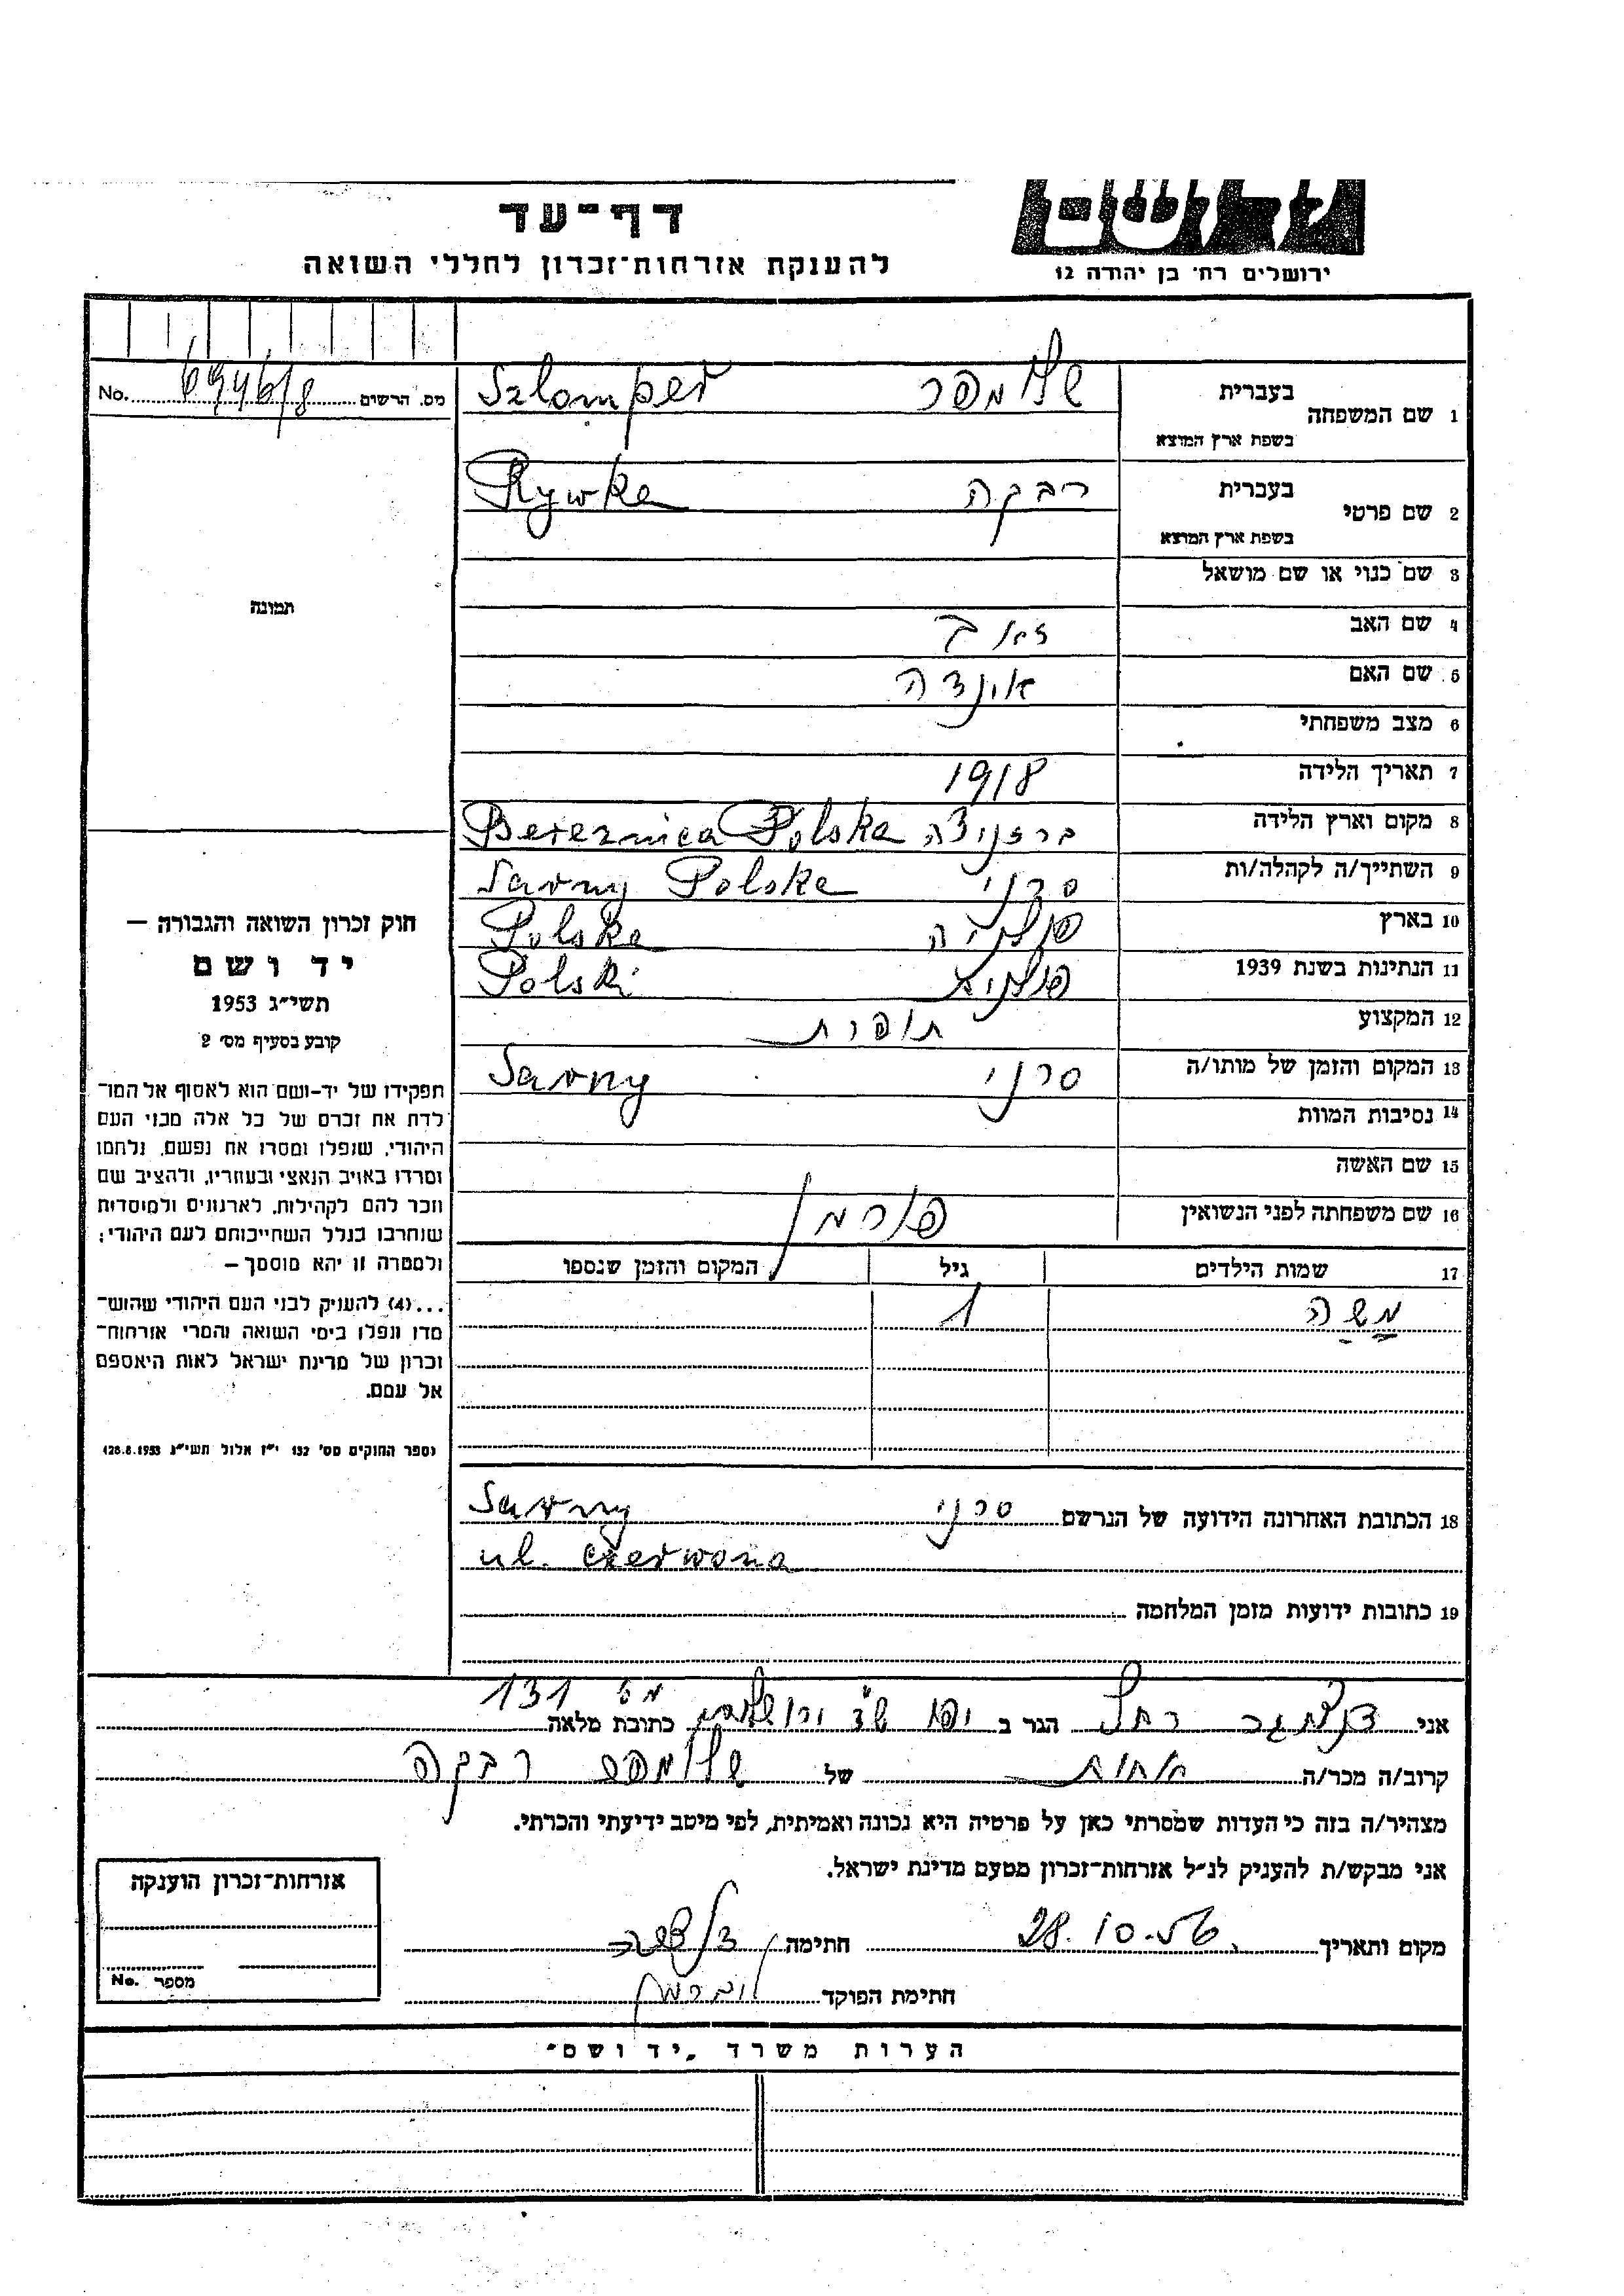 דף-עד
להענקת אזרחות-זכרון לחללי השואה
ירושלים רח' בן יהודה 12
מס. הרשים 69461/8 No.
1 שם המשפחה בעברית שלומפר Szlomper
בשפת ארץ המוצא
2 שם פרטי בעברית רבקה Rywka
בשפת ארץ המוצא
3 שם כנוי או שם מושאל
4 שם האב זאב
5 שם האם
6 מצב משפחתי
7 תאריך הלידה 1918
8 מקום וארץ הלידה ברזניצה Bereznica Polska
9 השתייך/ה לקהלה/ות סרני Sarny Polska
10 בארץ פולניה Polska
11 הנתינות בשנת 1939 פולנית Polski
12 המקצוע תופרת
13 המקום והזמן של מותו/ה סרני Sarny
14 נסיבות המוות
15 שם האשה
16 שם משפחתה לפני הנשואין פורמן
17 שמות הילדים גיל המקום והזמן שנספו
משה 1
18 הכתובת האחרונה הידועה של הנרשם סרני Sarny
ul. Czerwona
19 כתובות ידועות מזמן המלחמה
תמונה
חוק זכרון השואה והגבורה —
יד ושם
תשי״ג 1953
קובע בסעיף מס' 2
תפקידו של יד-ושם הוא לאסוף אל המו-
לדת את זכרם של כל אלה מבני העם
היהודי, שנפלו ומסרו את נפשם, נלחמו
ומרדו באויב הנאצי ובעוזריו, ולהציב שם
וזכר להם לקהילות, לארגונים ולמוסדות
שנחרבו בגלל השתייכותם לעם היהודי;
ולמטרה זו יהא מוסמך —
...(4) להעניק לבני העם היהודי שהוש-
מדו ונפלו בימי השואה והמרי אזרחות-
זכרון של מדינת ישראל לאות היאספם
אל עמם.
(ספר החוקים מס' 132 י״ז אלול תשי״ג 28.8.1953)
אני רחל הגר ב יפו שד ירושלים כתובת מלאה מס 131
קרוב/ה מכר/ה אחות של שלומפר רבקה
מצהיר/ה בזה כי העדות שמסרתי כאן על פרטיה היא נכונה ואמיתית, לפי מיטב ידיעתי והכרתי.
אני מבקש/ת להעניק לנ״ל אזרחות-זכרון מטעם מדינת ישראל.
מקום ותאריך 28.10.56 חתימה
חתימת הפוקד
אזרחות-זכרון הוענקה
מספר No.
הערות משרד „יד ושם״